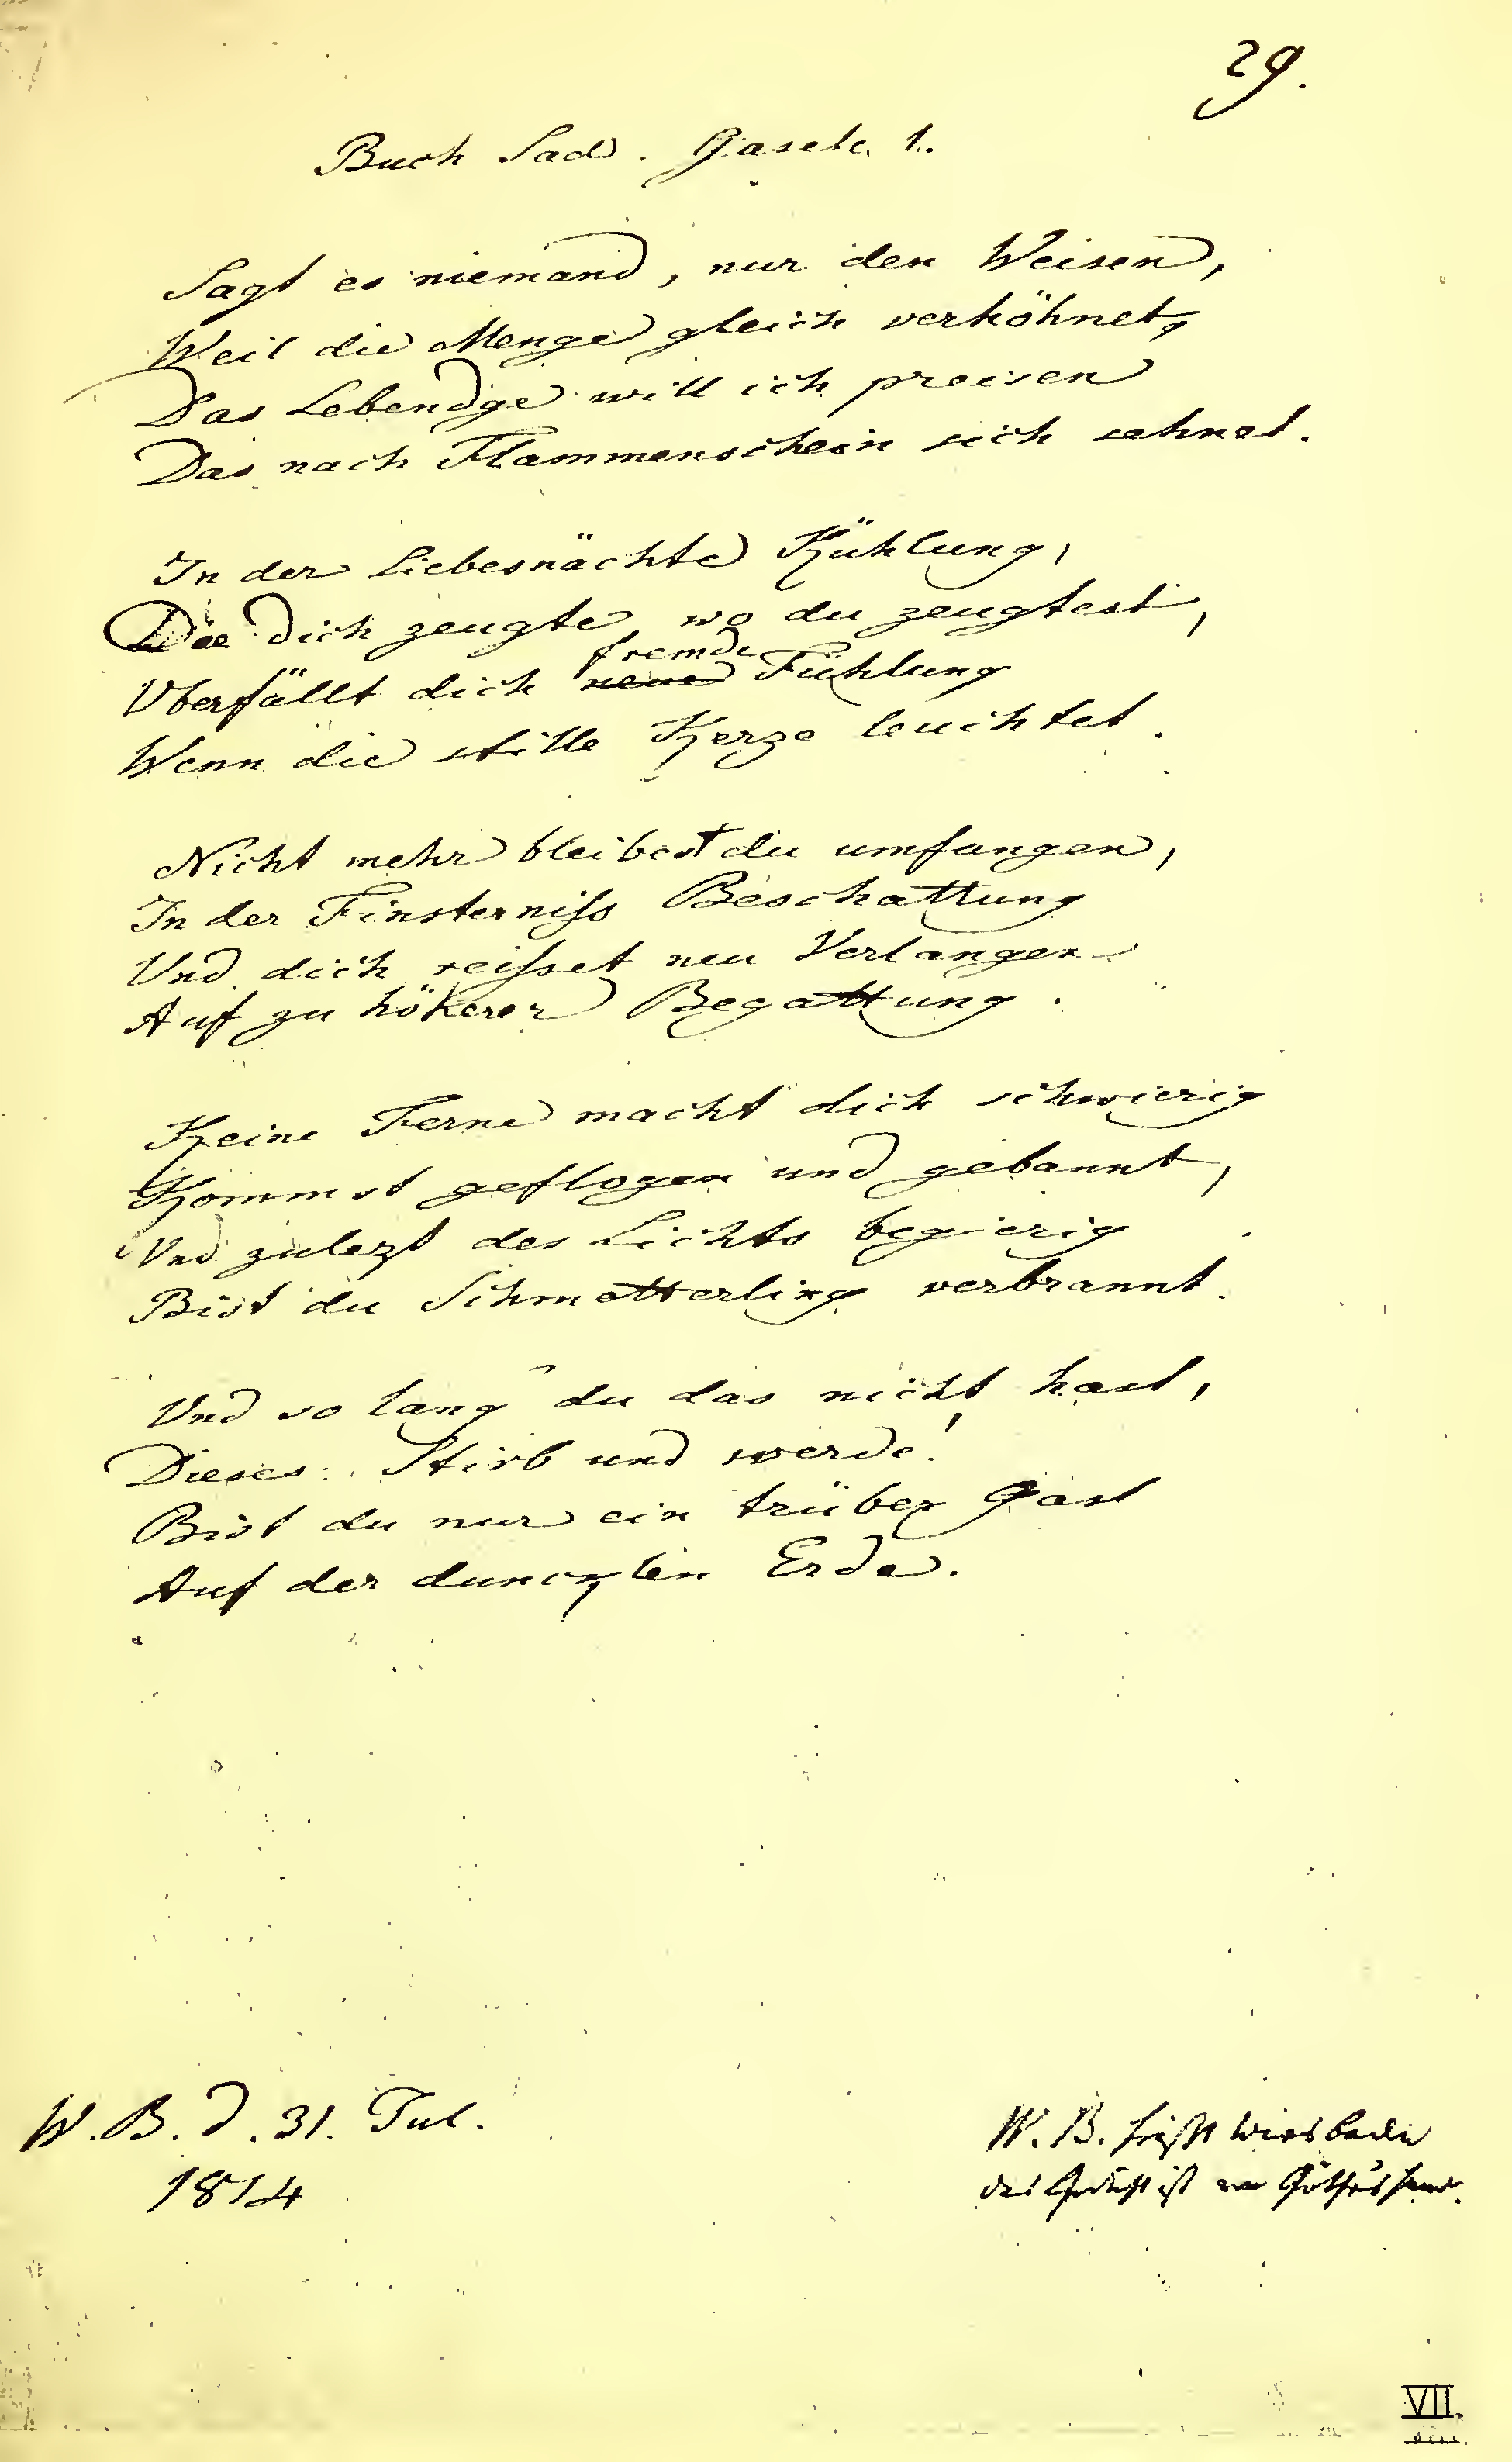 29.
Buch Sad. Gasele 1.
Sagt es niemand, nur den Weisen,
Weil die Menge gleich verhöhnet,
Das Lebendge will ich preisen
Das nach Flammenschein sich sehnet.
In der Liebesnächte Kühlung,
Die dich zeugte, wo du zeugtest,
Überfällt dich neue fremde Fühlung
Wenn die stille Kerze leuchtet.
Nicht mehr bleibest du umfangen,
In der Finsterniss Beschattung
Und dich reisset neu Verlangen
Auf zu höherer Begattung.
Keine Ferne macht dich schwierig
Kommst geflogen und gebannt,
Und zulezt des Lichts begierig
Bist du Schmetterling verbrannt.
Und so lang du das nicht hast,
Dieses: Stirb und werde!
Bist du nur ein trüber Gast
Auf der dunckeln Erde.
W. B. d. 31. Jul.
1814
W. B. heißt Wiesbaden
das Gedicht ist von Göthe's Hand.
VII.